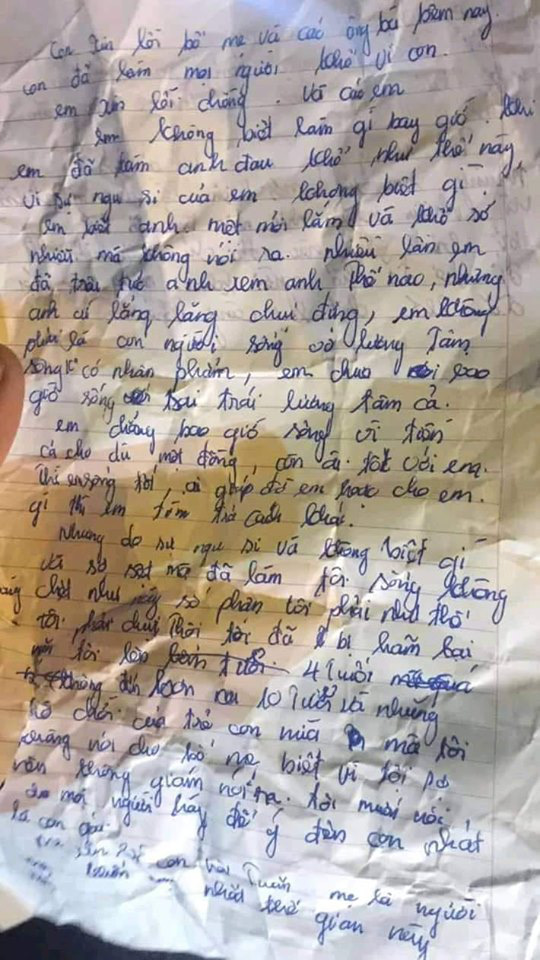 Con xin lỗi bố mẹ và các ông bà hôm nay.
con đã làm mọi người khổ vì con.
em xin lỗi chồng. và các em
em không biết làm gì bay giờ. khi
em đã làm anh đau khổ như thế này,
vì sự ngu si của em. không biết gì
em biết anh mệt mỏi lắm và khổ sở
nhiều mà không nói ra. nhiều lần em
đã anh xem anh thế nào, nhưng
anh cứ lẳng lặng chịu đựng, em không
phải là con người sống vô lương Tâm
sống có nhân phẩm, em chưa bao
giờ sống trái lương tâm cả.
em chẳng bao giờ sống vì tiền
cả cho dù một đồng, còn ai tốt với em.
Thì em sống tốt, ai giúp đỡ em cho em.
gì thì em tìm trả cách khác.
Nhưng do sự ngu si và không biết gì
và sợ sệt mà đã làm tôi sống không
chết như này số phận tôi phải như thế
tôi phải chịu Thôi tôi đã bị hãm hại
tôi lên 4 Tuổi
không đến hơn 10 Tuổi và những
trò chơi của trẻ con nữa mà tôi
không nói cho bố mẹ biết vì tôi
vẫn không giám nói ra. tôi muốn nói,
mọi người hãy để ý đến con nhất
là con gái.
con Tuấn mẹ là người
nhất thế gian này